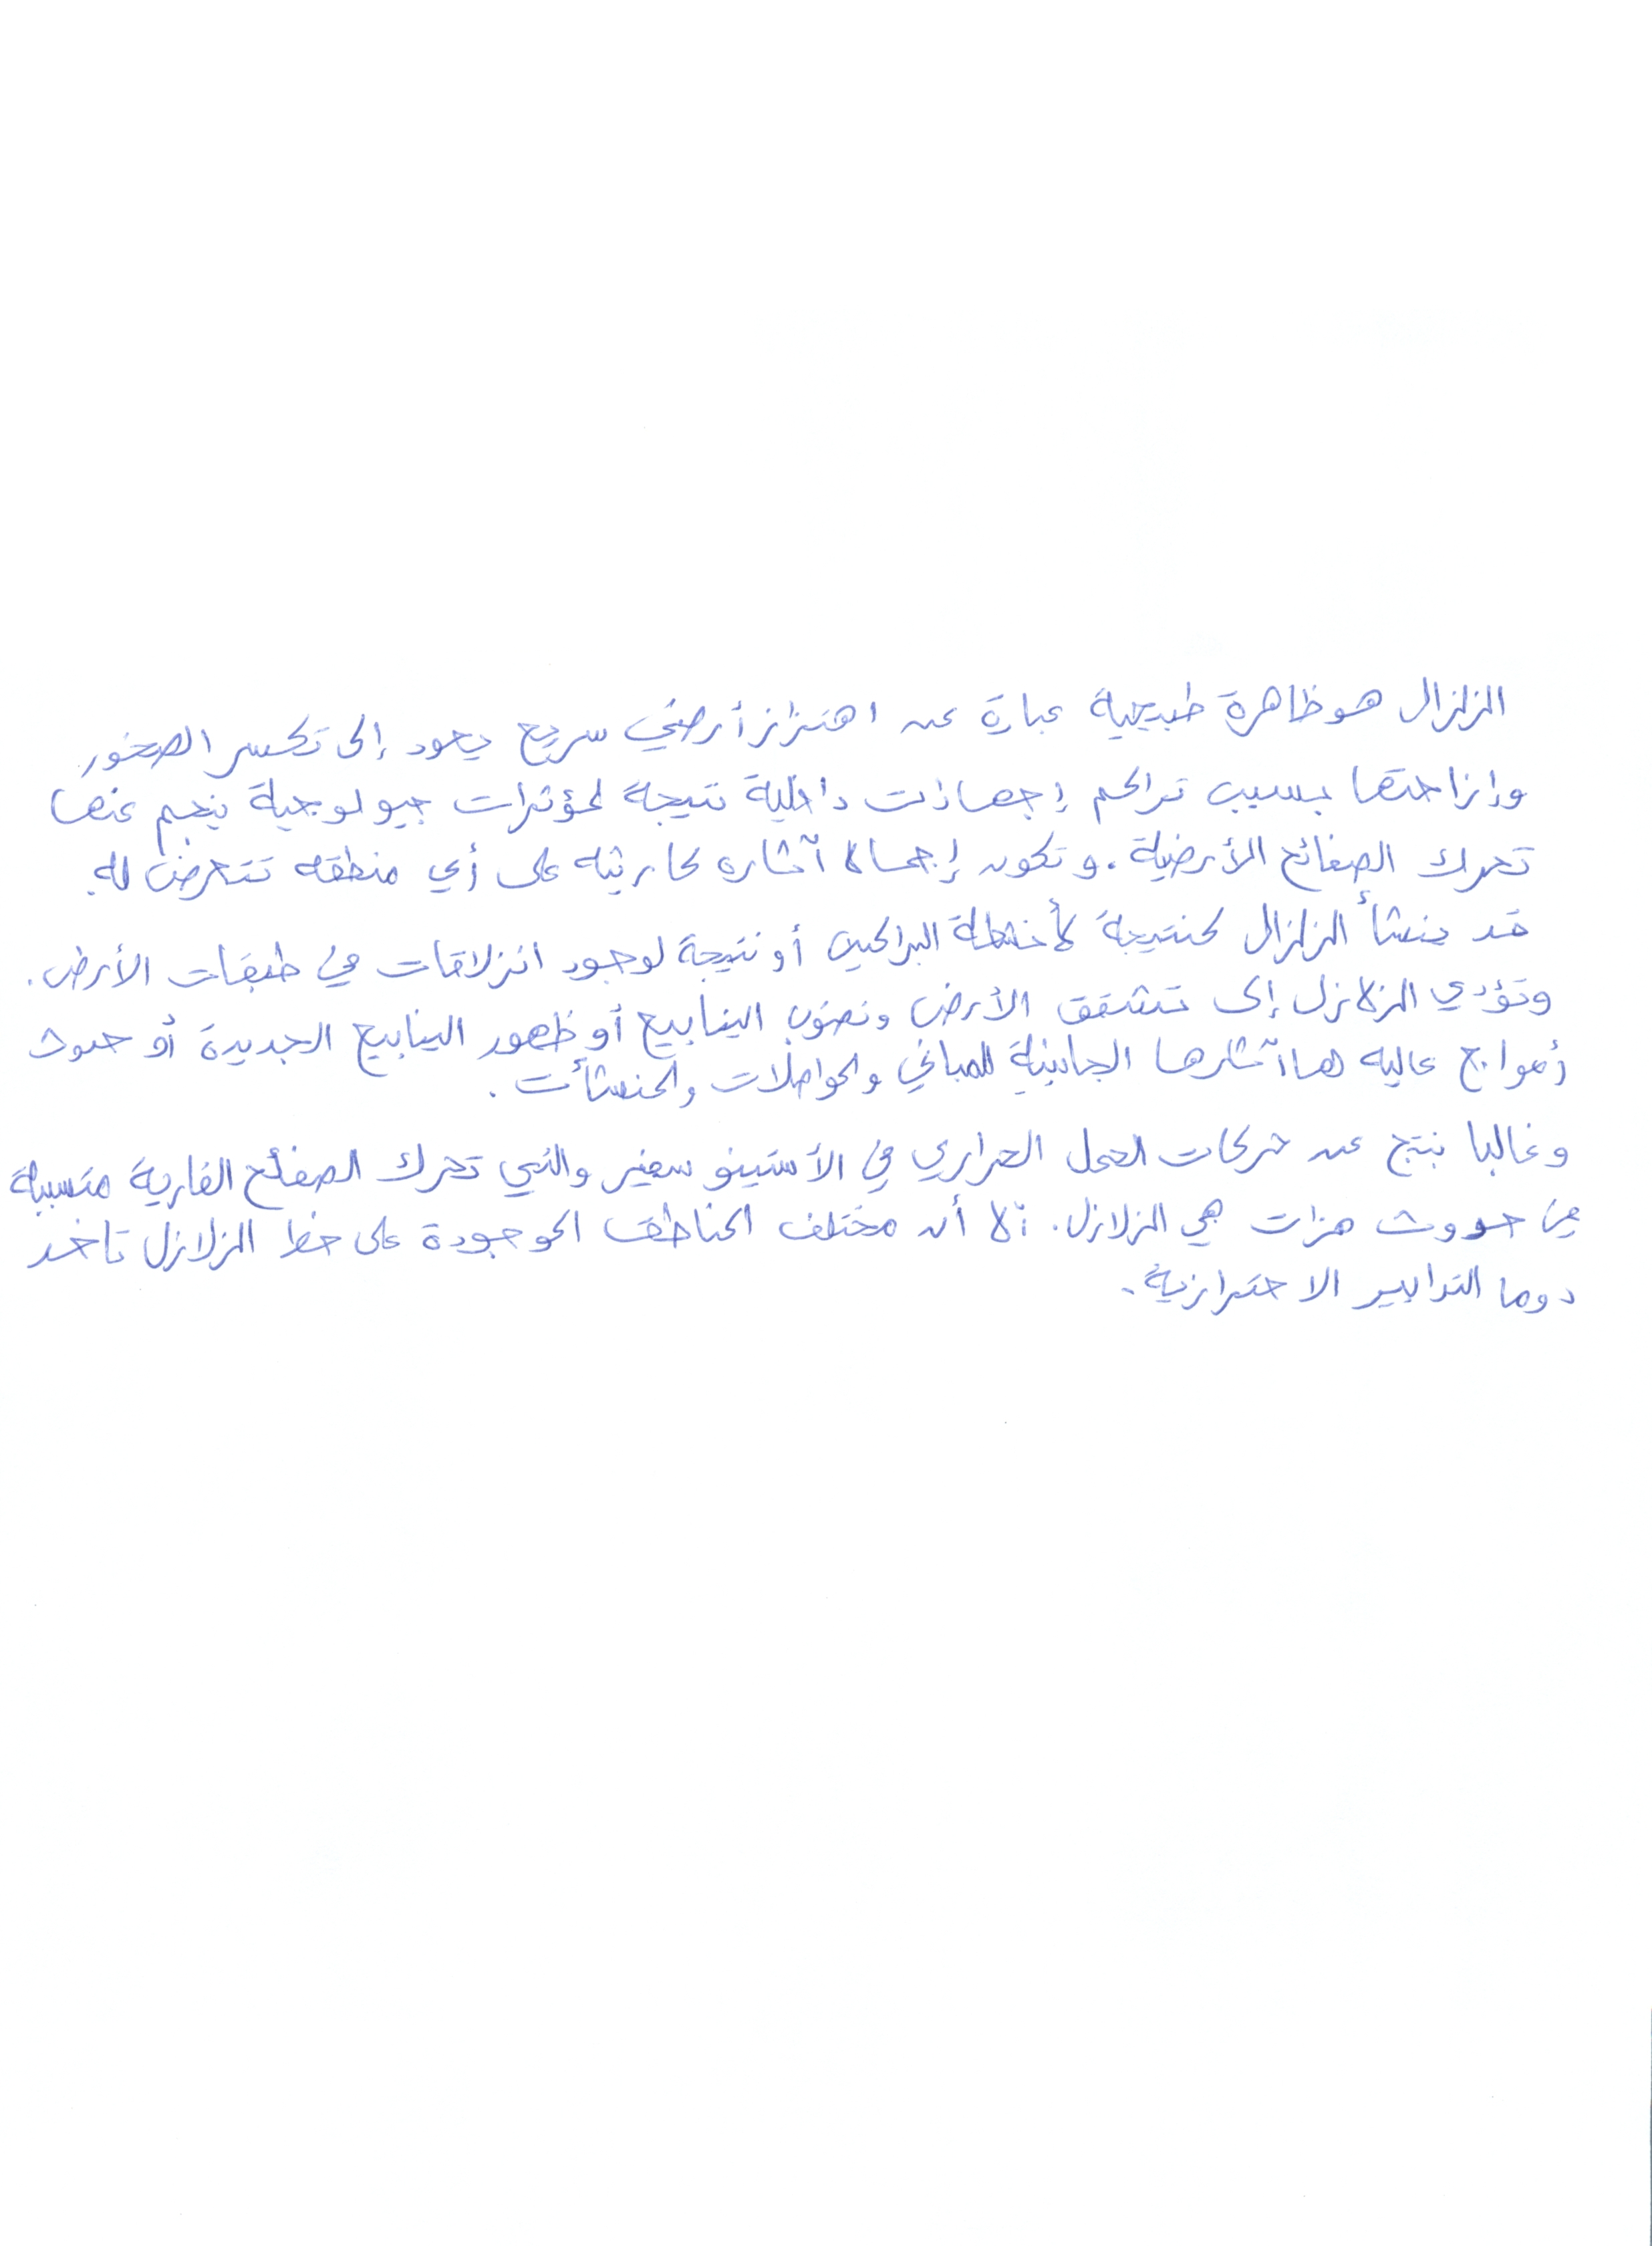 الزلزال هو ظاهرة طبيعية عبارة عن اهتزاز أرضي سريع يعود إلى تكسر الصخور
وإزاحتها بسبب تراكم إجهادات داخلية نتيجة لمؤثرات جيولوجية ينجم عنها
تحرك الصفائح الأرضية. وتكون إجمالا آثاره كارثيه على أي منطقه تتعرض له.
قد ينشأ الزلزال كنتيجة لأنشطة البراكين أو نتيجة لوجود انزلاقات في طبقات الأرض.
وتؤدي الزلازل إلى تشقق الأرض ونضوب الينابيع أو ظهور الينابيع الجديدة أو حدوث
أمواج عاليه لها آثارها الجانبية للمباني والمواصلات والمنشأت.
وغالبا ينتج عن حركات الحمل الحراري في الأستينوسفير والتي تحرك الصفائح القارية متسببة
في حدوث هزات هي الزلازل. إلا أن مختلف المناطق الموجودة على خط الزلازل تاخد
دوما التدابير الاحترازية.